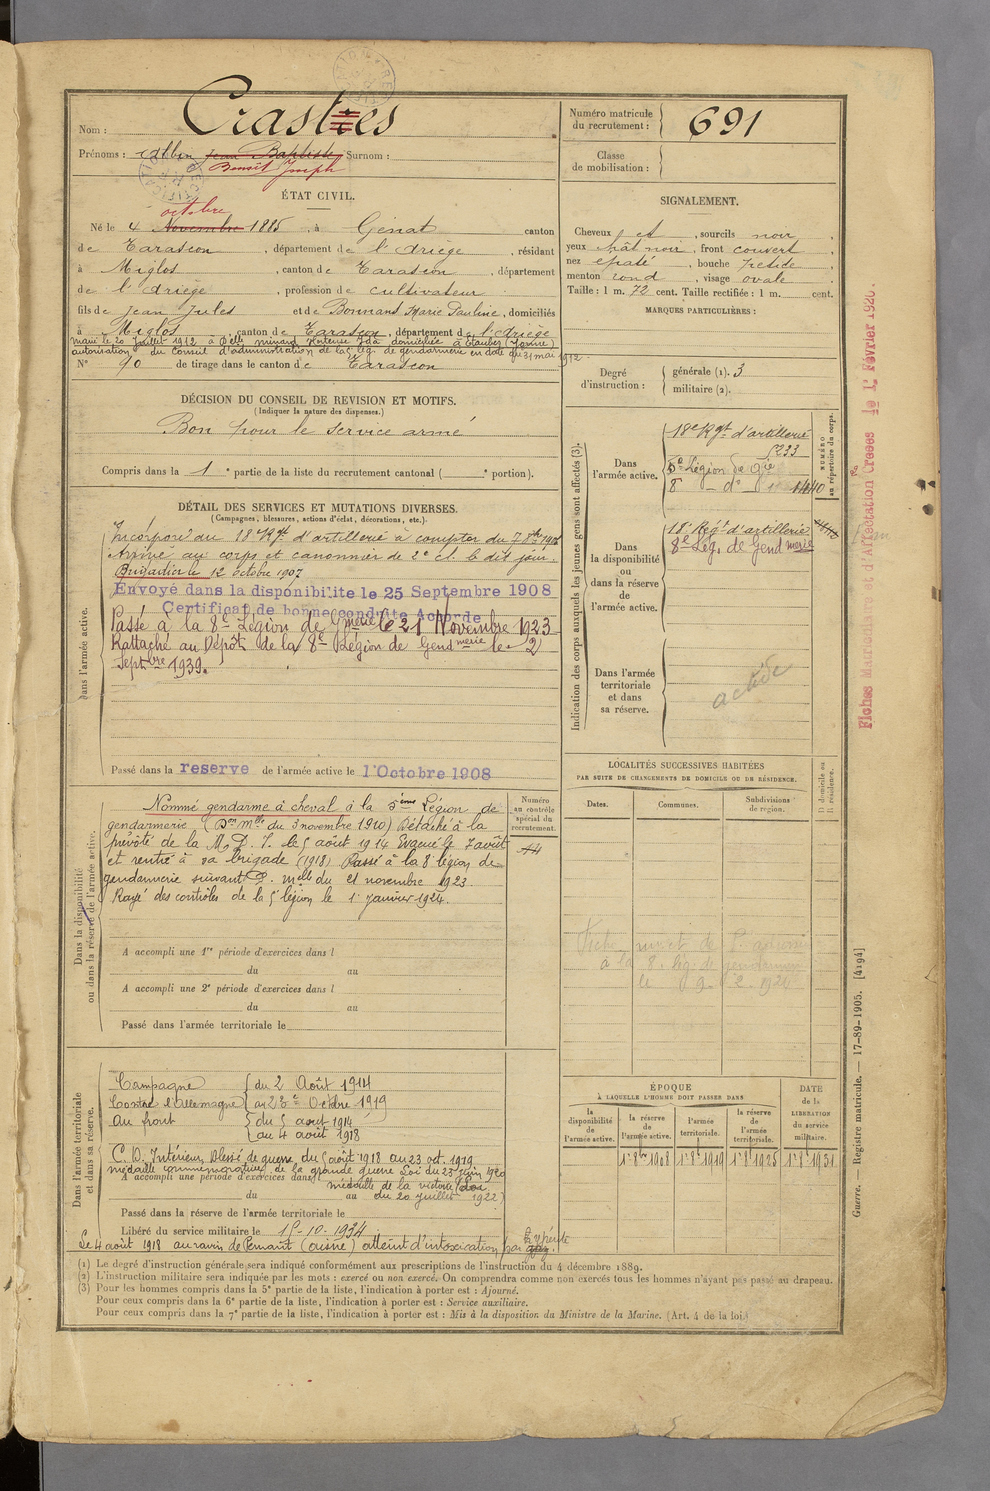 Nom : Crastes
Prénoms : Albin Jean Baptiste Surnom :
Benoît Joseph
ÉTAT CIVIL.
octobre
Né le 4 Novembre 1885, à Génat canton
de Tarascon, département de l'Ariège, résidant
à Miglos, canton de Tarascon, département
de l'Ariège, profession de cultivateur
fils de Jean Jules et de Bonnans Marie Pauline, domiciliés
à Miglos, canton de Tarascon, département de l'Ariège
marié le 20 juillet 1912 à Delle domiciliée à (Yonne)
autorisation du Conseil d'administration de la 5e lég. de gendarmerie en date du 31 mai 1912.
N° 90 de tirage dans le canton de Tarascon
DÉCISION DU CONSEIL DE REVISION ET MOTIFS.
(Indiquer la nature des dispenses.)
Bon pour le service armé
Compris dans la 1e partie de la liste du recrutement cantonal ( e portion).
DÉTAIL DES SERVICES ET MUTATIONS DIVERSES.
(Campagnes, blessures, actions d'éclat, décorations, etc.).
Dans l'armée active.
Incorporé au 18e Rgt d'artillerie à compter du 7 8bre 1906
Arrivé au corps et canonnier de 2e cl. le dit jour.
Brigadier le 12 octobre 1907
Envoyé dans la disponibilité le 25 Septembre 1908
Certificat de bonne conduite Accordé
Passé à la 8e Légion de Gmerie le 21 Novembre 1923
Rattaché au Dépôt de la 8e Légion de Gendmerie le 2
Septbre 1939.
Passé dans la reserve de l'armée active le 1er Octobre 1908
Dans la disponibilité
ou dans la réserve de l'armée active.
Nommé gendarme à cheval à la 5ème Légion de
gendarmerie (Don melle du 3 novembre 1910) Détaché à la
prévôté de la M. D. I. le 5 août 1914 Evacué le 7 août
et rentré à sa brigade (1918) Passé à la 8e légion de
gendarmerie suivant D. melle du 21 novembre 1923.
Rayé des contrôles de la 5e légion le 1er janvier 1924.
Numéro
au contrôle
spécial du
recrutement.
A accompli une 1re période d'exercices dans l
du au
A accompli une 2e période d'exercices dans l
du au
Passé dans l'armée territoriale le
Dans l'armée territoriale
et dans sa réserve.
Campagne { du 2 Août 1914
Contre l'Allemagne { au 23 Octobre 1919
au front { du 5 août 1914
{ au 4 août 1918
C. D. Intérieur, blessé de guerre du 5 août 1918 au 23 oct. 1919
médaille commémorative de la grande guerre Loi du 23 juin 1920
A accompli une période d'exercices dans l médaille de la victoire (Loi
du au du 20 juillet 1922)
Passé dans la réserve de l'armée territoriale le
Libéré du service militaire le 15-10-1934
Le 4 août 1918 au ravin de Pernant (Aisne) atteint d'intoxication par ypérite gaz.
Numéro matricule
du recrutement : } 691
Classe
de mobilisation : }
SIGNALEMENT.
Cheveux et, sourcils noir,
yeux chât noir, front couvert,
nez épaté, bouche petite,
menton rond, visage ovale.
Taille : 1 m. 72 cent. Taille rectifiée : 1 m. cent.
MARQUES PARTICULIÈRES :
Degré
d'instruction : { générale (1). 3
{ militaire (2).
Indication des corps auxquels les jeunes gens sont affectés (3).
NUMÉRO
au répertoire du corps.
Dans
l'armée active.
18e Rgt d'artillerie
5233
5e Légion de Gie
8 — do 1440
Dans
la disponibilité
ou
dans la réserve
de
l'armée active.
18e Régt d'artillerie
8e Lég. de Gendmerie
Dans l'armée
territoriale
et dans
sa réserve.
LOCALITÉS SUCCESSIVES HABITÉES
PAR SUITE DE CHANGEMENTS DE DOMICILE OU DE RÉSIDENCE.
Dates. Communes. Subdivisions
de région. D domicile ou
R résidence.
à la 8. lég. de gendarmerie
ÉPOQUE
À LAQUELLE L'HOMME DOIT PASSER DANS
DATE
de la
LIBÉRATION
du service
militaire.
la
disponibilité
de
l'armée active.
la réserve
de
l'armée active.
l'armée
territoriale.
la réserve
de
l'armée
territoriale.
1er 8bre 1908 1er 8bre 1919 1er 8bre 1925 1er 8bre 1931
(1) Le degré d'instruction générale sera indiqué conformément aux prescriptions de l'instruction du 4 décembre 1889.
(2) L'instruction militaire sera indiquée par les mots : exercé ou non exercé. On comprendra comme non exercés tous les hommes n'ayant pas passé au drapeau.
(3) Pour les hommes compris dans la 5e partie de la liste, l'indication à porter est : Ajourné.
Pour ceux compris dans la 6e partie de la liste, l'indication à porter est : Service auxiliaire.
Pour ceux compris dans la 7e partie de la liste, l'indication à porter est : Mis à la disposition du Ministre de la Marine. (Art. 4 de la loi.)
Fiches Matriculaire et d'Affectation Créées le 1er Février 1926.
Guerre. — Registre matricule. — 17-89-1905. [4194]